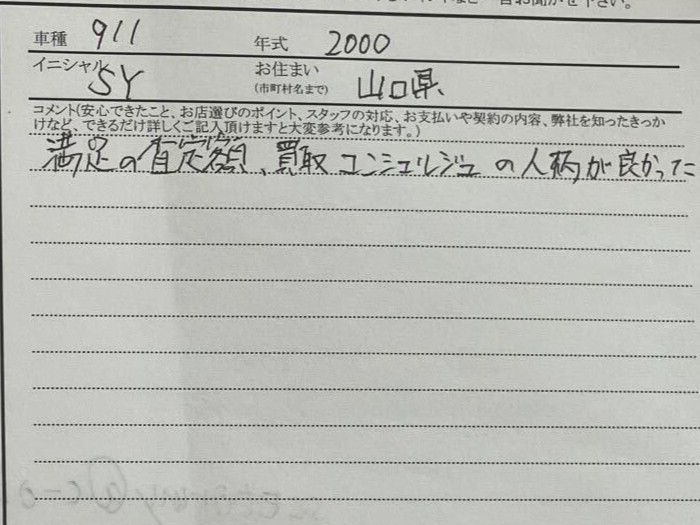 車種 911 年式 2000
イニシャル SY お住まい (市町村名まで) 山口県
コメント(安心できたこと、お店選びのポイント、スタッフの対応、お支払いや契約の内容、弊社を知ったきっか
けなど、できるだけ詳しくご記入頂けますと大変参考になります。)
満足の査定額、買取コンシェルジュの人柄が良かった